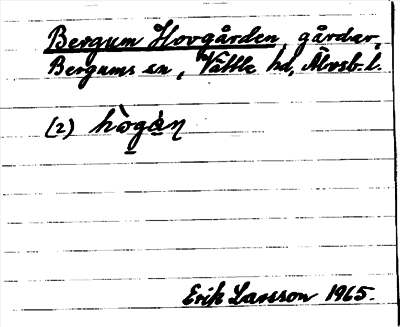 Bergum Hovgården, gårdar,
Bergums sn, Vättle hd, Älvsb. l.
(2) hògàn
Erik Larsson 1965.